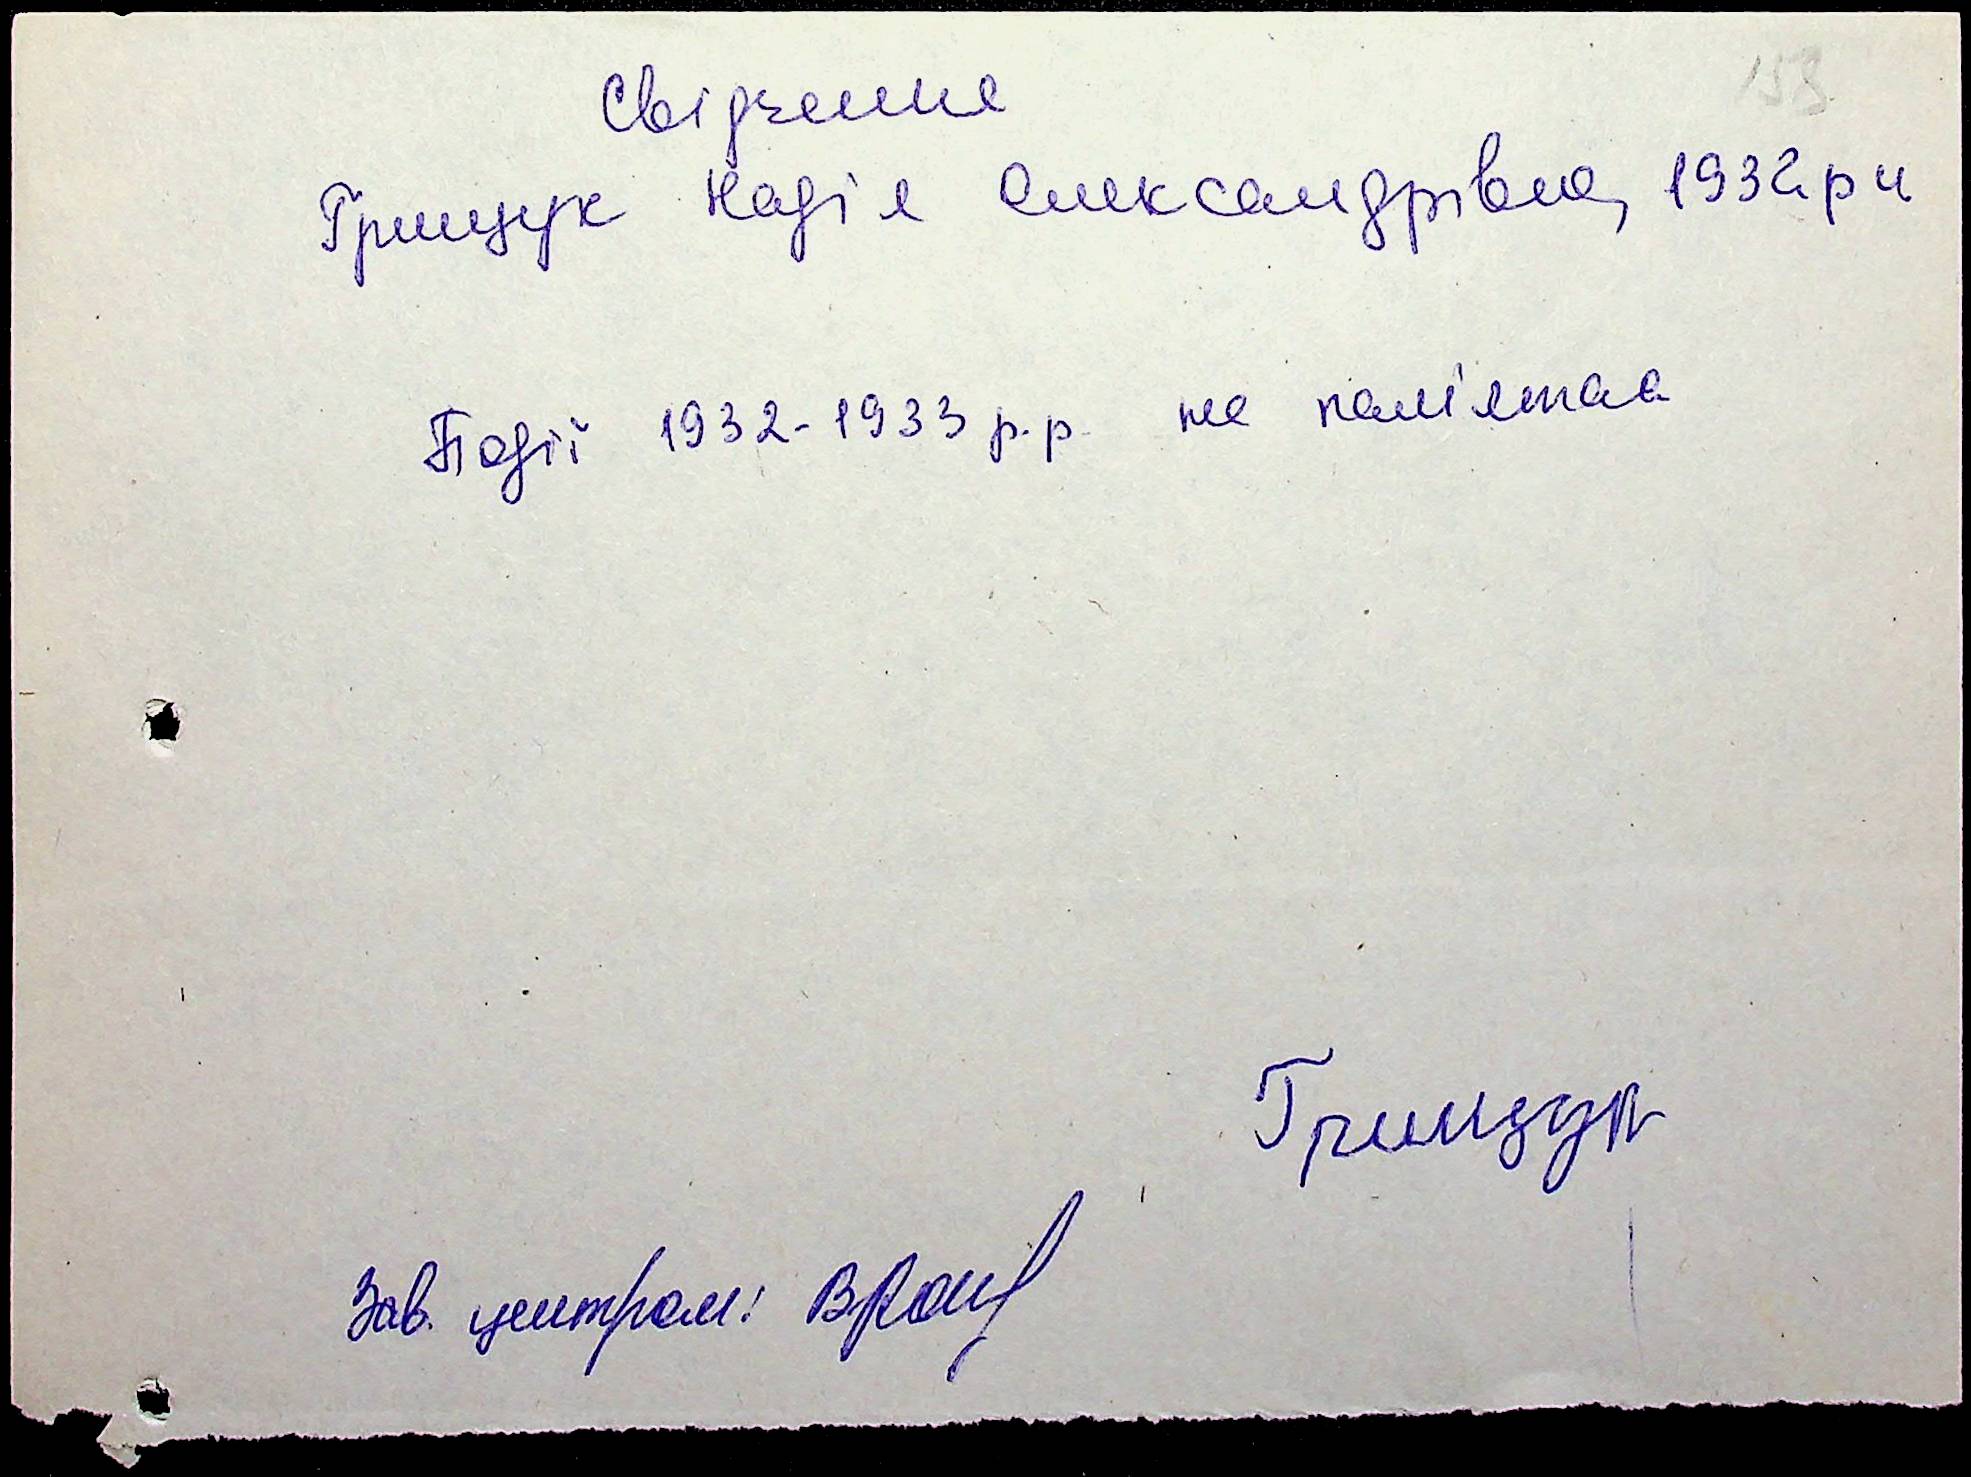 153
Свідчення
Грищук Надія Олександрівна, 1932 р н
Події 1932-1933 р.р. не пам'ятаа
Грищук
Зав. центром: